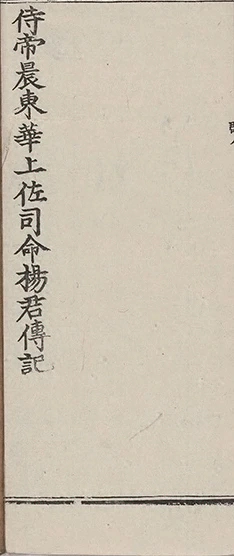 侍帝晨東華上佐司命楊君傳記